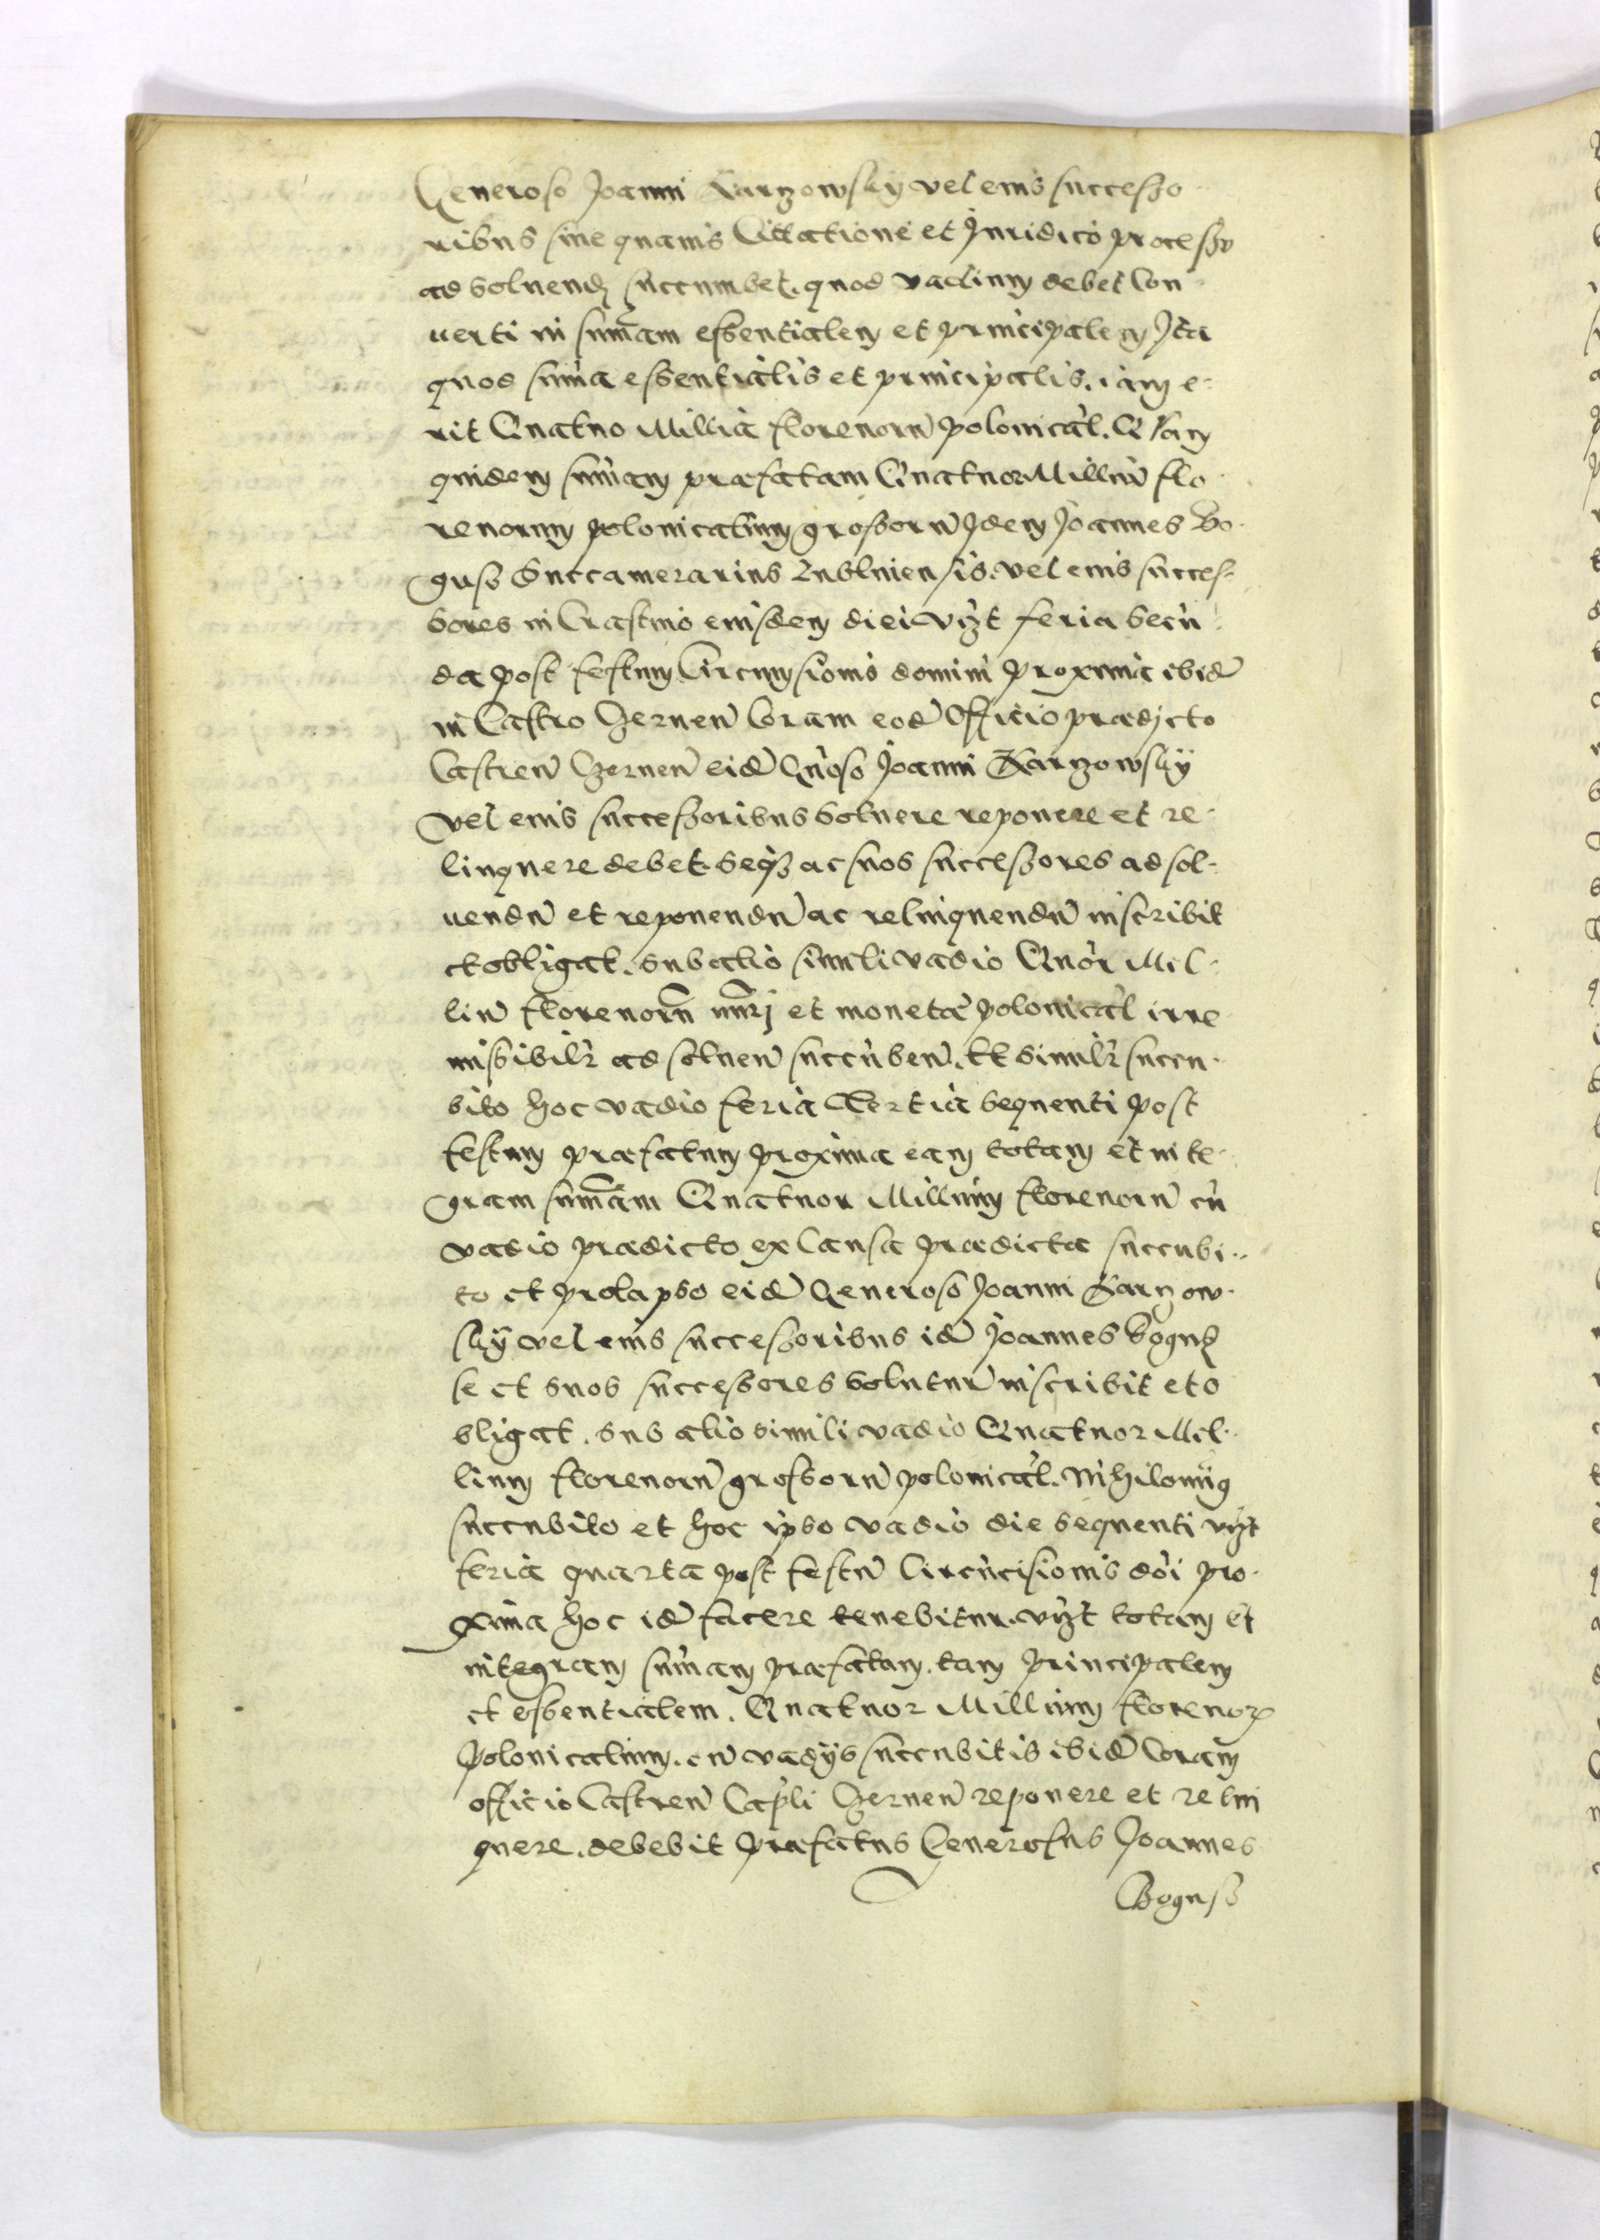 Generoso Joanni Karzowsky vel eius successo
ribus sine quavis Citatione et Juridico processu
ad solvend succumbet. quod vadium debet Con
uerti in summam essentialem et principalem Ita
quod suma essentialis et principalis. iam e-
rit Quatuo Millia florenoru polonical. Quam
quidem sumam præfatam Quatuor Milliu flo
renorum polonicalium grossoru Idem Joannes Bo-
gusz Succamerarius Lublinien sis. vel eius succes-
sores in Crastino eiusdem diei vizt feria Secu
da post festum Circumsionis domini proxima ibid
in Castro Chernen Coram eod Officio prædicto
Castren Chernen eid Gnoso Joanni Karzowsky
vel eius successoribus Solvere reponere et re-
linquere debet. Seqz ac suos successores ad sol-
uendu et reponendu ac relinquendu inscribit
et obligat. sub alio simili vadio Quor Mil-
liu florenoru numri et monetæ polonical irre
missibilr ad soluen succuben. Et similr succu-
bito hoc vadio feria Tertia sequenti post
festum præfatum proxima eam totam et inte-
gram summam Quatuor Millium florenoru cu
vadio prædicto ex Causa prædicta succubi-
to et prolapso eid Generoso Joanni Karzow-
sky vel eius successoribus id Joannes Bogusz
se et suos successores soluturu inscribit et o
bligat. sub alio simili vadio Quatuor Mil-
lium florenoru grossoru polonical. Nihilomin9
succubito et hoc ipso vadio die sequenti vizt
feria quarta post festu Circucisionis doi pro-
xima hoc id facere tenebitur. vizt totam et
integram sumam præfatam. tam principalem
et essentialem. Quatuor Millium florenor
polonicalium. cu vadijs succubitis ibid Coram
officio Castren Capli Chernen reponere et relin
quere. debebit præfatus Generosus Joannes
Bogusz